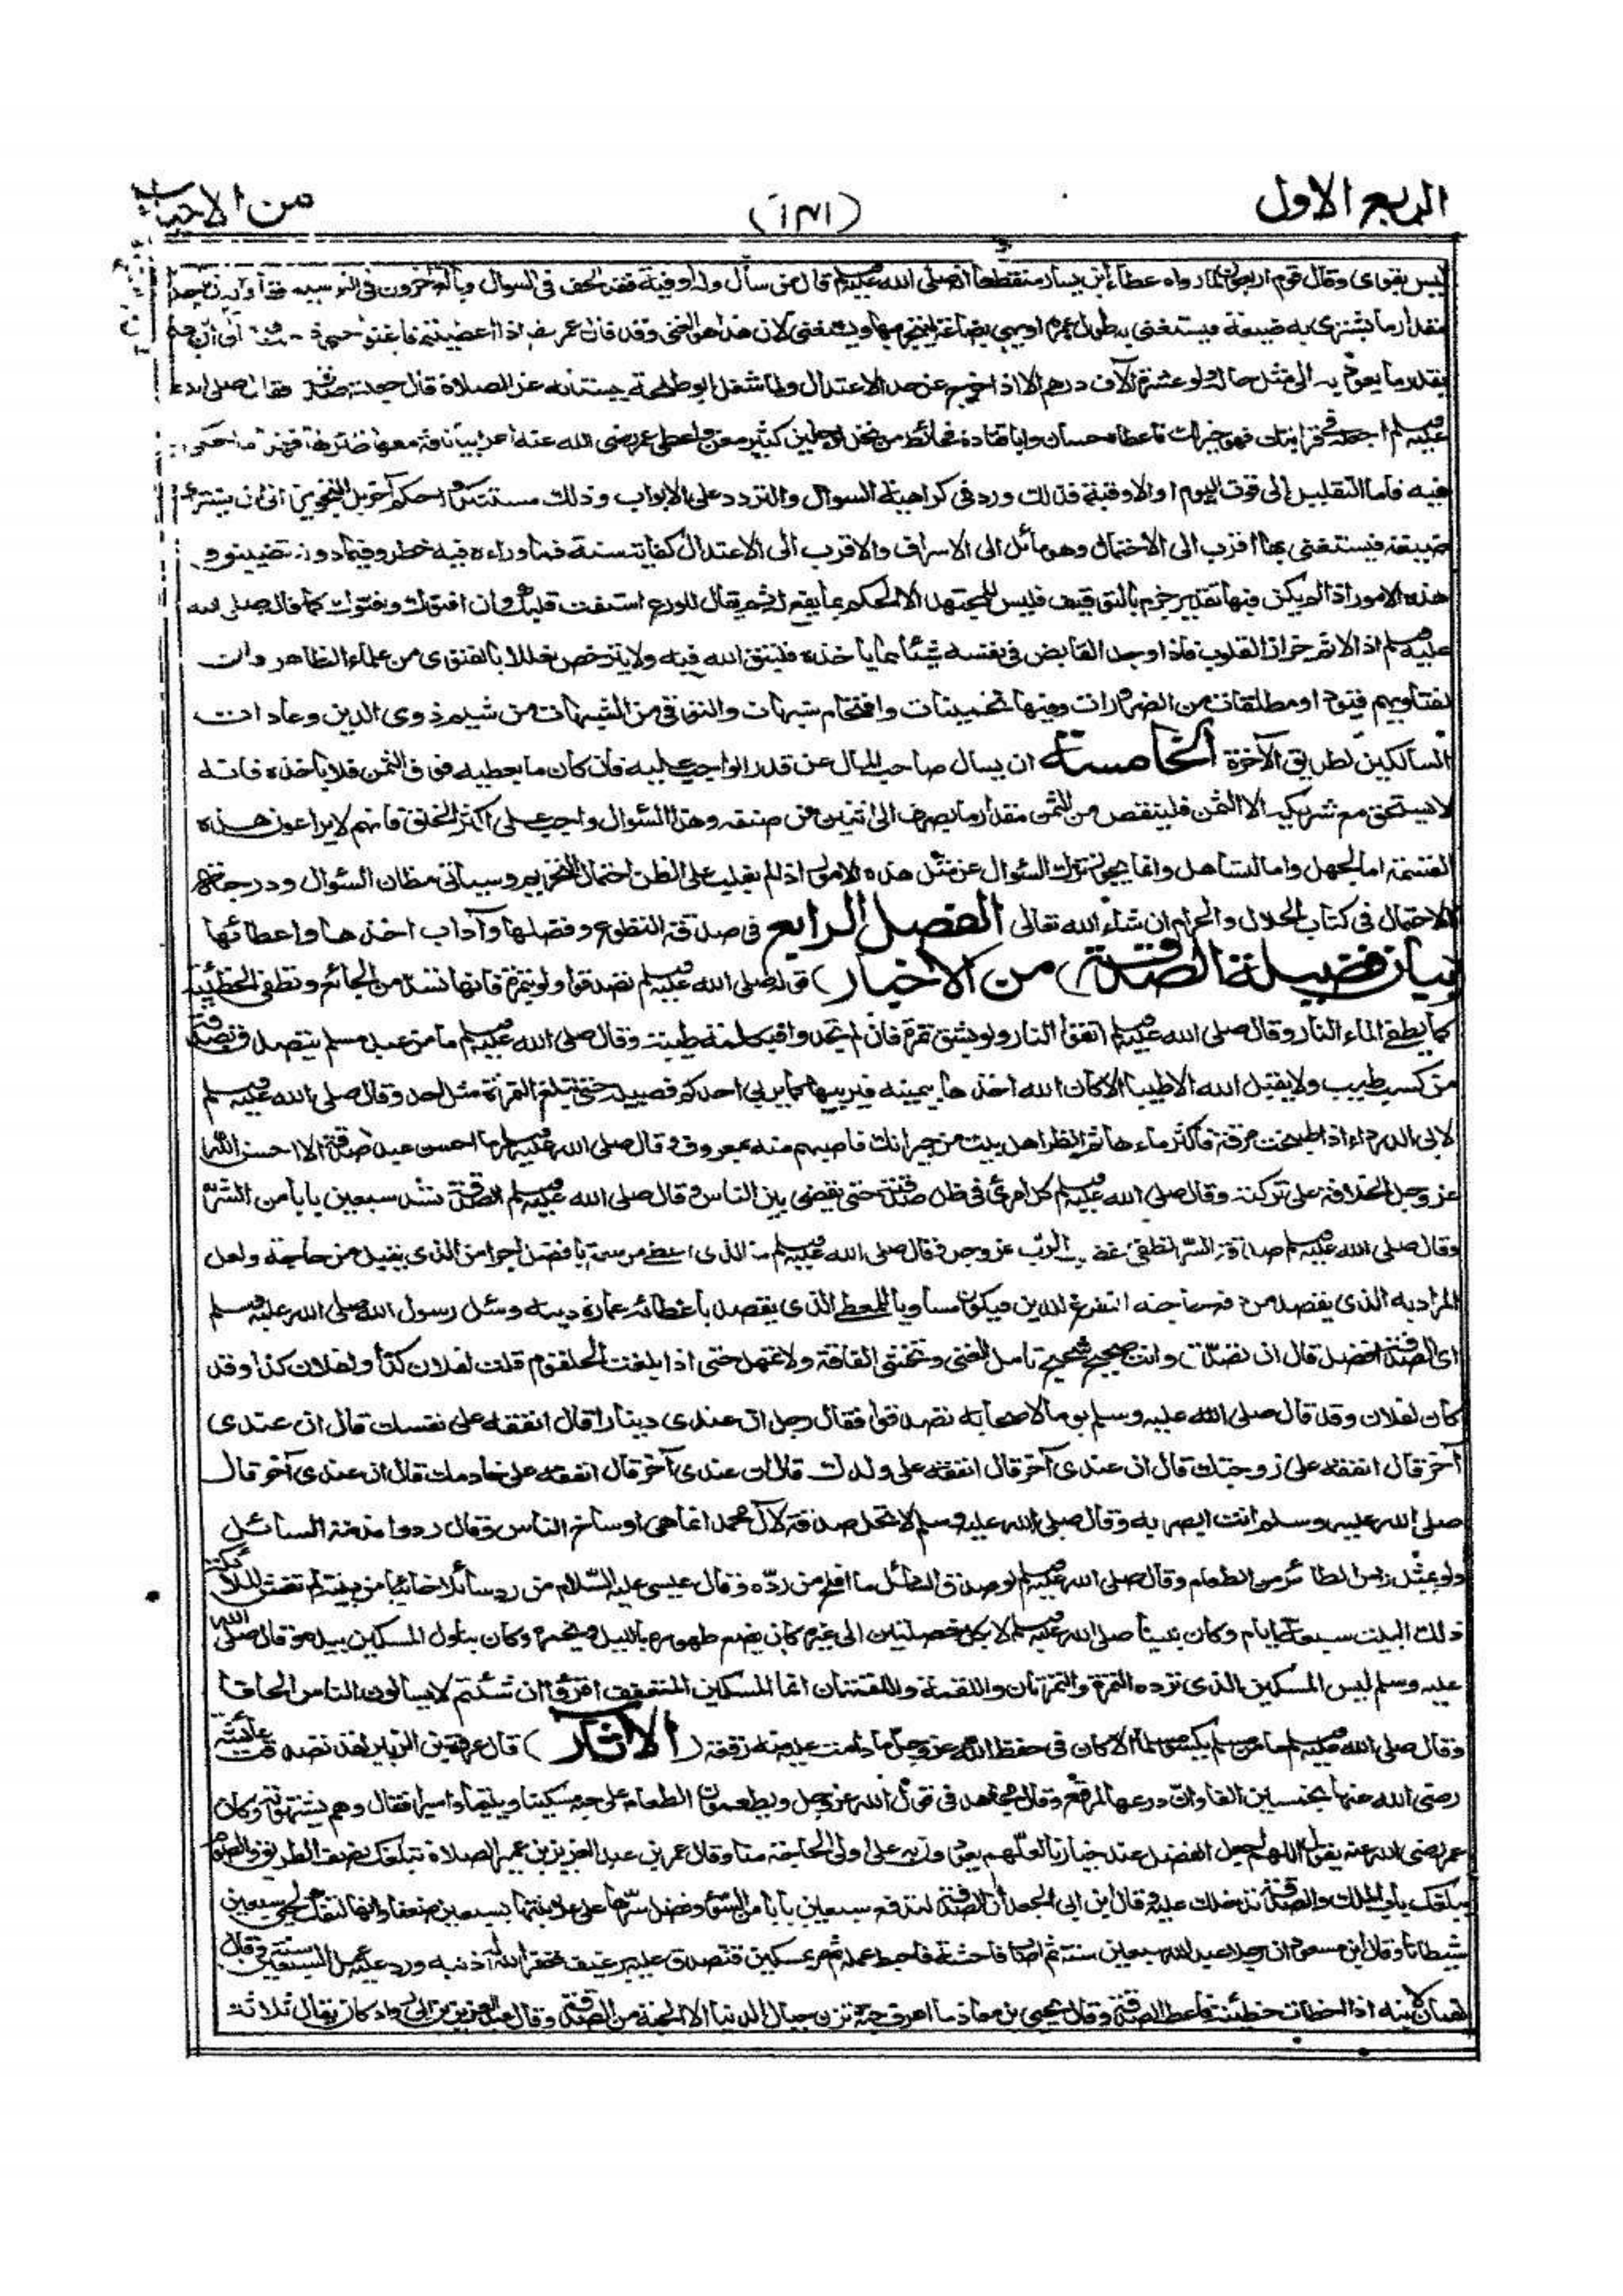 الربع الاول
(١٣١)
من الاحياء
ليس بقوى وقال قوم اربعون لما رواه عطاء بن يسار منقطعا انه صلى الله عليه وسلم قال من سأل وله اوقية فقد الحف في السوال وبالغ آخرون في التوسيع فقالوا له ان ياخذ
مقدار ما يشترى به ضيعة فيستغنى به طول عمره او يهيئ بضاعة ليتجر بها ويستغنى لان هذا هو الغنى وقد قال عمر رضه اذا اعطيتم فاغنوا حتى ذهب قوم الى ان من
بقدر ما يعود به الى مثل حاله ولو عشرة آلاف درهم الا اذا خرج عن حد الاعتدال ولما شغل ابو طلحة ببستانه عن الصلاة قال جعلته صدقة فقال صلى الله
عليه وسلم اجعله في قرابتك فهو خير لك فاعطاه حسان وابا قتادة فحائط من نخل لرجلين كثير مغن واعطى عمر رضى الله عنه اعرابيا ناقة معها ظئر لها فهذا ما حكى
فيه فاما التقليل الى قوت اليوم او الاوقية فذلك ورد في كراهية السوال والتردد على الابواب وذلك مستنكر وله حكم آخر بل التجويز الى ان يشترى
ضيعة فيستغنى بها اقرب الى الاحتمال وهو مائل الى الاسراف والاقرب الى الاعتدال كفاية سنة فما وراءه فيه خطر وفيما دونه تضييق و
هذه الامور اذا لم يكن فيها تقدير جزم بالتوقيف فليس للمجتهد الا الحكم بما يقع له ثم يقال للورع استفت قلبك وان افتوك وافتوك كما قال صلى الله
عليه وسلم اذ الاثم حزاز القلوب فاذا وجد القابض في نفسه شيئا مما ياخذه فليتق الله فيه ولا يترخص تعللا بالفتوى من علماء الظاهر فان
لفتاويهم قيودا ومطلقات من الضرورات وفيها تخمينات واقتحام شبهات والتوقى من الشبهات من شيم ذوى الدين وعادات
السالكين لطريق الآخرة الخامسة ان يسال صاحب المال عن قدر الواجب عليه فان كان ما يعطيه فوق الثمن فلا ياخذه فانه
لا يستحق مع شريكيه الا الثمن فلينقص من الثمن مقدار ما يصرف الى اثنين من صنفه وهذا السؤال واجب على اكثر الخلق فانهم لا يراعون هذه
القسمة اما لجهل واما لتساهل وانما يجوز ترك السؤال عن مثل هذه الامور اذا لم يغلب على الظن احتمال التحريم وسياتى مظان السؤال ودرجات
الاحتمال في كتاب الحلال والحرام ان شاء الله تعالى الفصل الرابع في صدقة التطوع وفضلها وآداب اخذها واعطائها
بيان فضيلة الصدقة (من الاخبار) قوله صلى الله عليه وسلم تصدقوا ولو بتمرة فانها تسد من الجائع وتطفى الخطيئة
كما يطفى الماء النار وقال صلى الله عليه وسلم اتقوا النار ولو بشق تمرة فان لم تجدوا فبكلمة طيبة وقال صلى الله عليه وسلم ما من عبد مسلم يتصدق بصدقة
من كسب طيب ولا يقبل الله الا طيبا الا كان الله آخذها بيمينه فيربيها كما يربى احدكم فصيله حتى تبلغ التمرة مثل احد وقال صلى الله عليه وسلم
لابى الدرداء اذا طبخت مرقة فاكثر ماءها ثم انظر اهل بيت من جيرانك فاصبهم منه بمعروف وقال صلى الله عليه وسلم ما احسن عبد صدقة الا احسن الله
عز وجل الخلافة على تركته وقال صلى الله عليه وسلم كل امرئ في ظل صدقته حتى يقضى بين الناس وقال صلى الله عليه وسلم الصدقة تسد سبعين بابا من الشر
وقال صلى الله عليه وسلم صدقة السر تطفئ غضب الرب عز وجل وقال صلى الله عليه وسلم ما الذى اعطى من سعة بافضل اجرا من الذى يقبل من حاجة ولعل
المراد به الذى يقصد من دفع حاجته التفرغ للدين فيكون مساويا للمعطى الذى يقصد باعطائه عمارة دينه وسئل رسول الله صلى الله عليه وسلم
اى الصدقة افضل قال ان تصدق وانت صحيح شحيح تامل الغنى وتخشى الفاقة ولا تمهل حتى اذا بلغت الحلقوم قلت لفلان كذا ولفلان كذا وقد
كان لفلان وقد قال صلى الله عليه وسلم يوما لاصحابه تصدقوا فقال رجل ان عندى دينارا قال انفقه على نفسك قال ان عندى
آخر قال انفقه على زوجتك قال ان عندى آخر قال انفقه على ولدك قال ان عندى آخر قال انفقه على خادمك قال ان عندى آخر قال
صلى الله عليه وسلم انت ابصر به وقال صلى الله عليه وسلم لا تحل صدقة لآل محمد انما هى اوساخ الناس وقال ردوا مذمة السائل
ولو بمثل راس الطائر من الطعام وقال صلى الله عليه وسلم لو صدق السائل ما افلح من رده وقال عيسى عليه السلام من رد سائلا خائبا من بيته لم تغش الملائكة
ذلك البيت سبعة ايام وكان نبينا صلى الله عليه وسلم لا يكل خصلتين الى غيره كان يضع طهوره بالليل ويخمره وكان يناول المسكين بيده وقال صلى الله
عليه وسلم ليس المسكين الذى ترده التمرة والتمرتان واللقمة واللقمتان انما المسكين المتعفف اقرؤا ان شئتم لا يسالون الناس الحافا
وقال صلى الله عليه وسلم ما من مسلم يكسو مسلما الا كان في حفظ الله عز وجل ما دامت عليه منه رقعة (الآثار) قال عروة بن الزبير لقد تصدقت عائشة
رضى الله عنها بخمسين الفا وان درعها لمرقع وقال مجاهد في قول الله عز وجل ويطعمون الطعام على حبه مسكينا ويتيما واسيرا فقال وهم يشتهونه وكان
عمر رضى الله عنه يقول اللهم اجعل الفضل عند خيارنا لعلهم يعودون به على اولى الحاجة منا وقال عمر بن عبد العزيز بن عمير الصلاة تبلغك نصف الطريق والصوم
يبلغك باب الملك والصدقة تدخلك عليه وقال ابن ابى الجعد ان الصدقة لتدفع سبعين بابا من السوء وفضل سرها على علانيتها بسبعين ضعفا وانها لتفك لحيى سبعين
شيطانا وقال ابن مسعود ان رجلا عبد الله سبعين سنة ثم اصاب فاحشة فاحبط عمله ثم مر بمسكين فتصدق عليه برغيف فغفر الله له ذنبه ورد عليه عمل السبعين سنة وقال
لقمان لابنه اذا اخطات خطيئة فاعط الصدقة وقال يحيى بن معاذ ما اعرف حبة تزن جبال الدنيا الا الحبة من الصدقة وقال عبد العزيز بن ابى رواد كان يقال ثلاثة